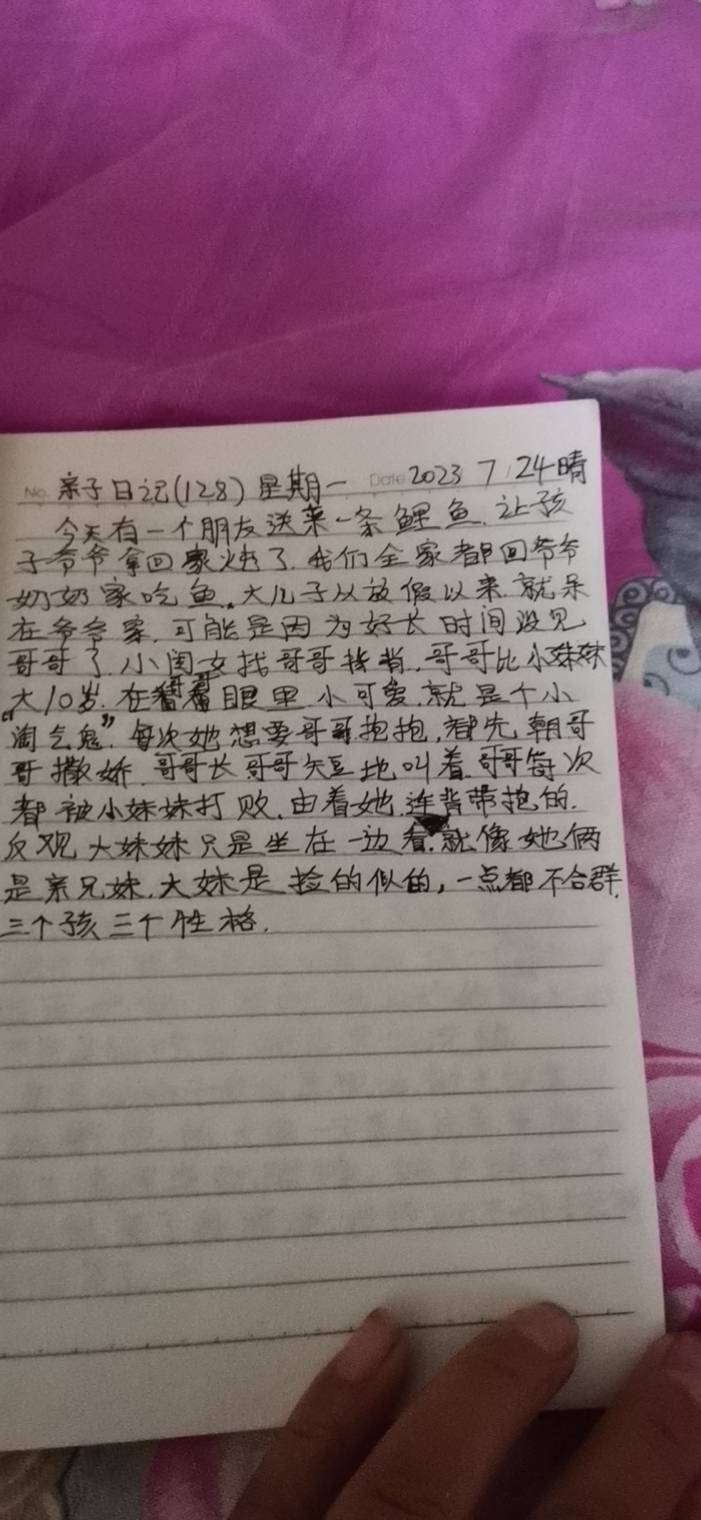 No. 亲子日记(128) 星期一 Date 2023 7 24晴
今天有一个朋友送来一条鲤鱼.让孩
子爷爷拿回家炖了.我们全家都回爷爷
奶奶家吃鱼。大儿子从放假以来.就呆
在爷爷家.可能是因为好长时间没见
哥哥了.小闺女找哥哥挨揍.哥哥比小妹妹
大10岁.在哥哥眼里小可爱.就是个小
“淘气鬼”.每次她想要哥哥抱抱,都先朝哥
哥撒娇.哥哥长哥哥短地叫着.哥哥每次
都被小妹妹打败.由着她.连背带抱的.
反观大妹妹只是坐在一边看.就像她俩
是亲兄妹.大妹是捡的似的,一点都不合群.
三个孩三个性格.